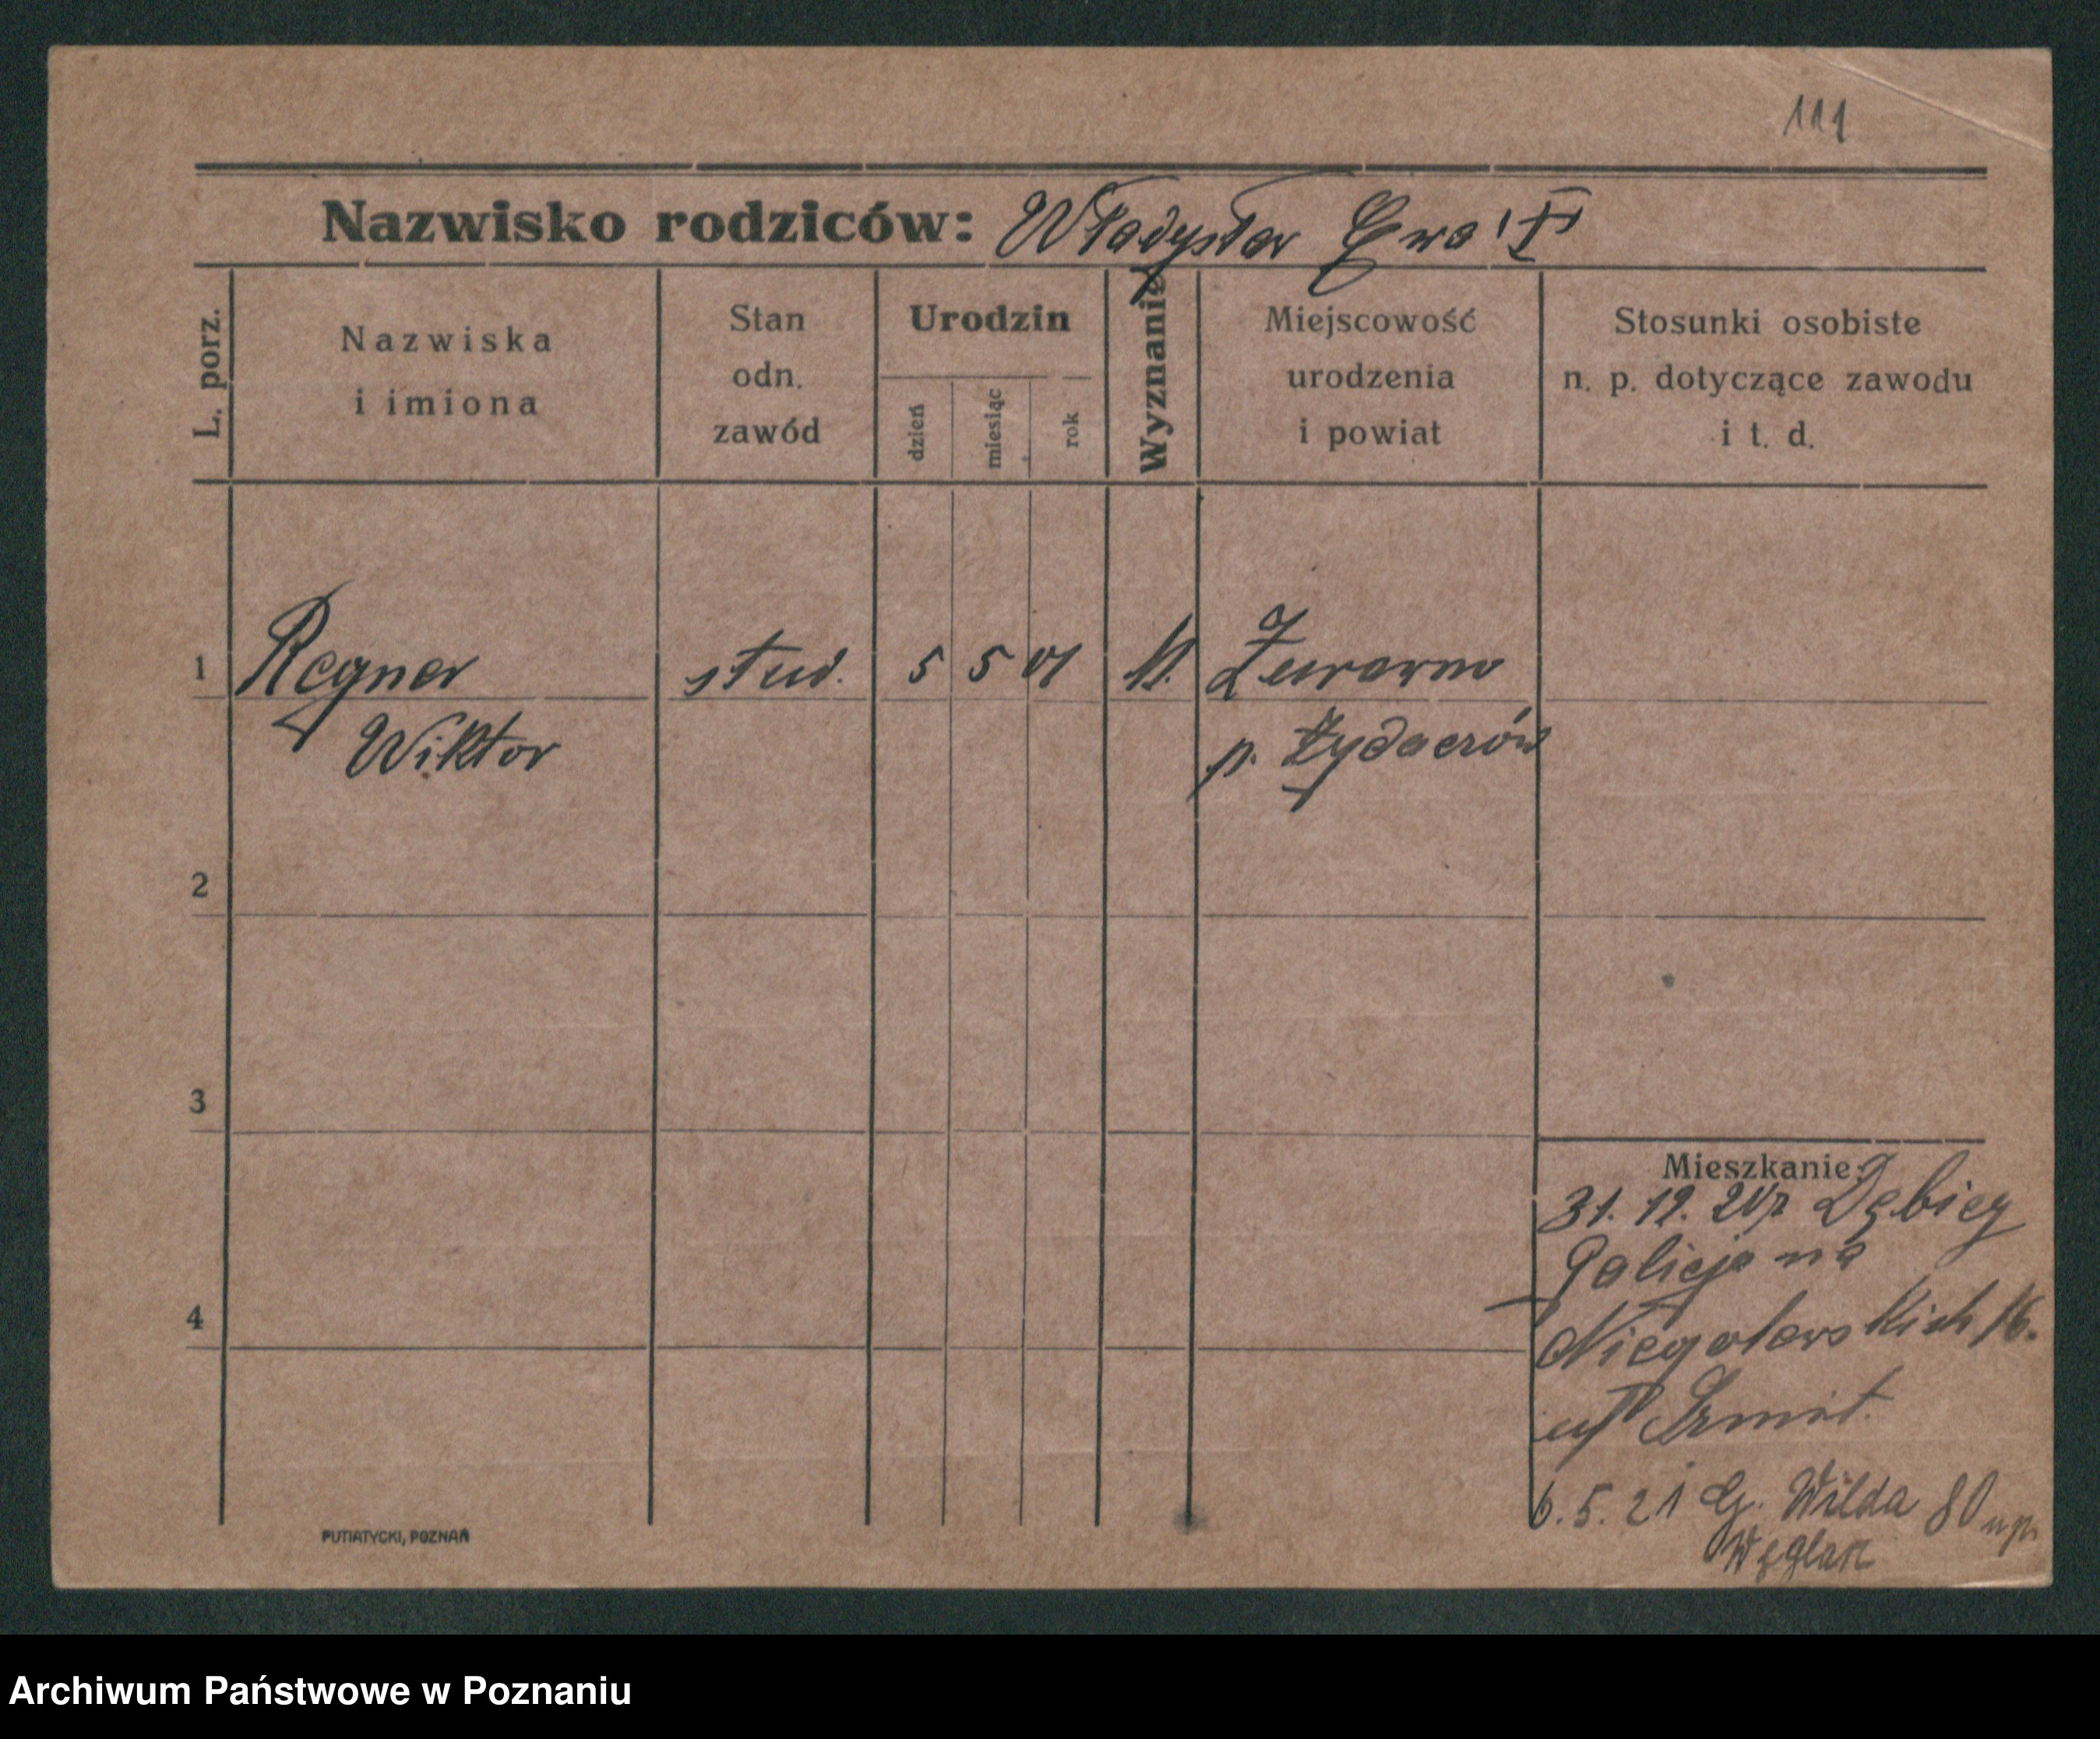 111
Nazwisko rodziców: Władysław Ewa
L. porz.
Nazwiska i imiona
Stan odn. zawód
Urodzin
dzień
miesiąc
rok
Wyznanie
Miejscowość urodzenia i powiat
Stosunki osobiste n. p. dotyczące zawodu i t. d.
1 Regner stud. 5 5 01
Wiktor p. Żydaczów
2
3
4
Mieszkanie:
31. 12. Dębiey
Galicja na
Niegolewskich 16.
6. 5. 21 G. Wilda 80
Węglarz
PUTIATYCKI, POZNAŃ
Archiwum Państwowe w Poznaniu